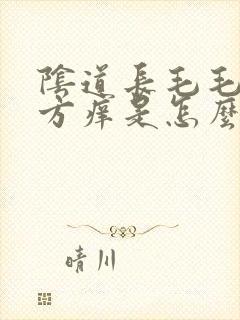 陰道長毛毛
方痒是怎麼
晴川